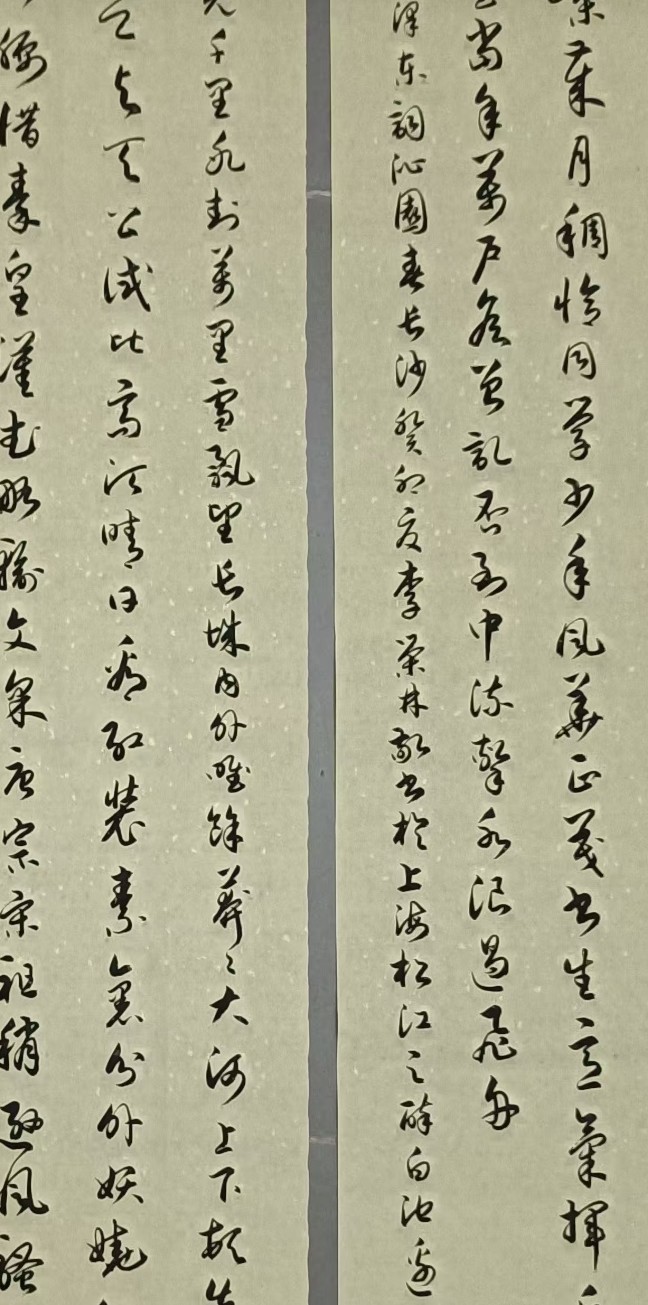 嵘岁月稠恰同学少年风华正茂书生意气挥
当年万户侯曾记否到中流击水浪遏飞舟
泽东词沁园春长沙癸卯夏李荣林敬书于上海松江之醉白池边
千里冰封万里雪飘望长城内外唯余莽〻大河上下顿失
与天公试比高须晴日看红装素裹分外妖娆
腰惜秦皇汉武略输文采唐宗宋祖稍逊风骚